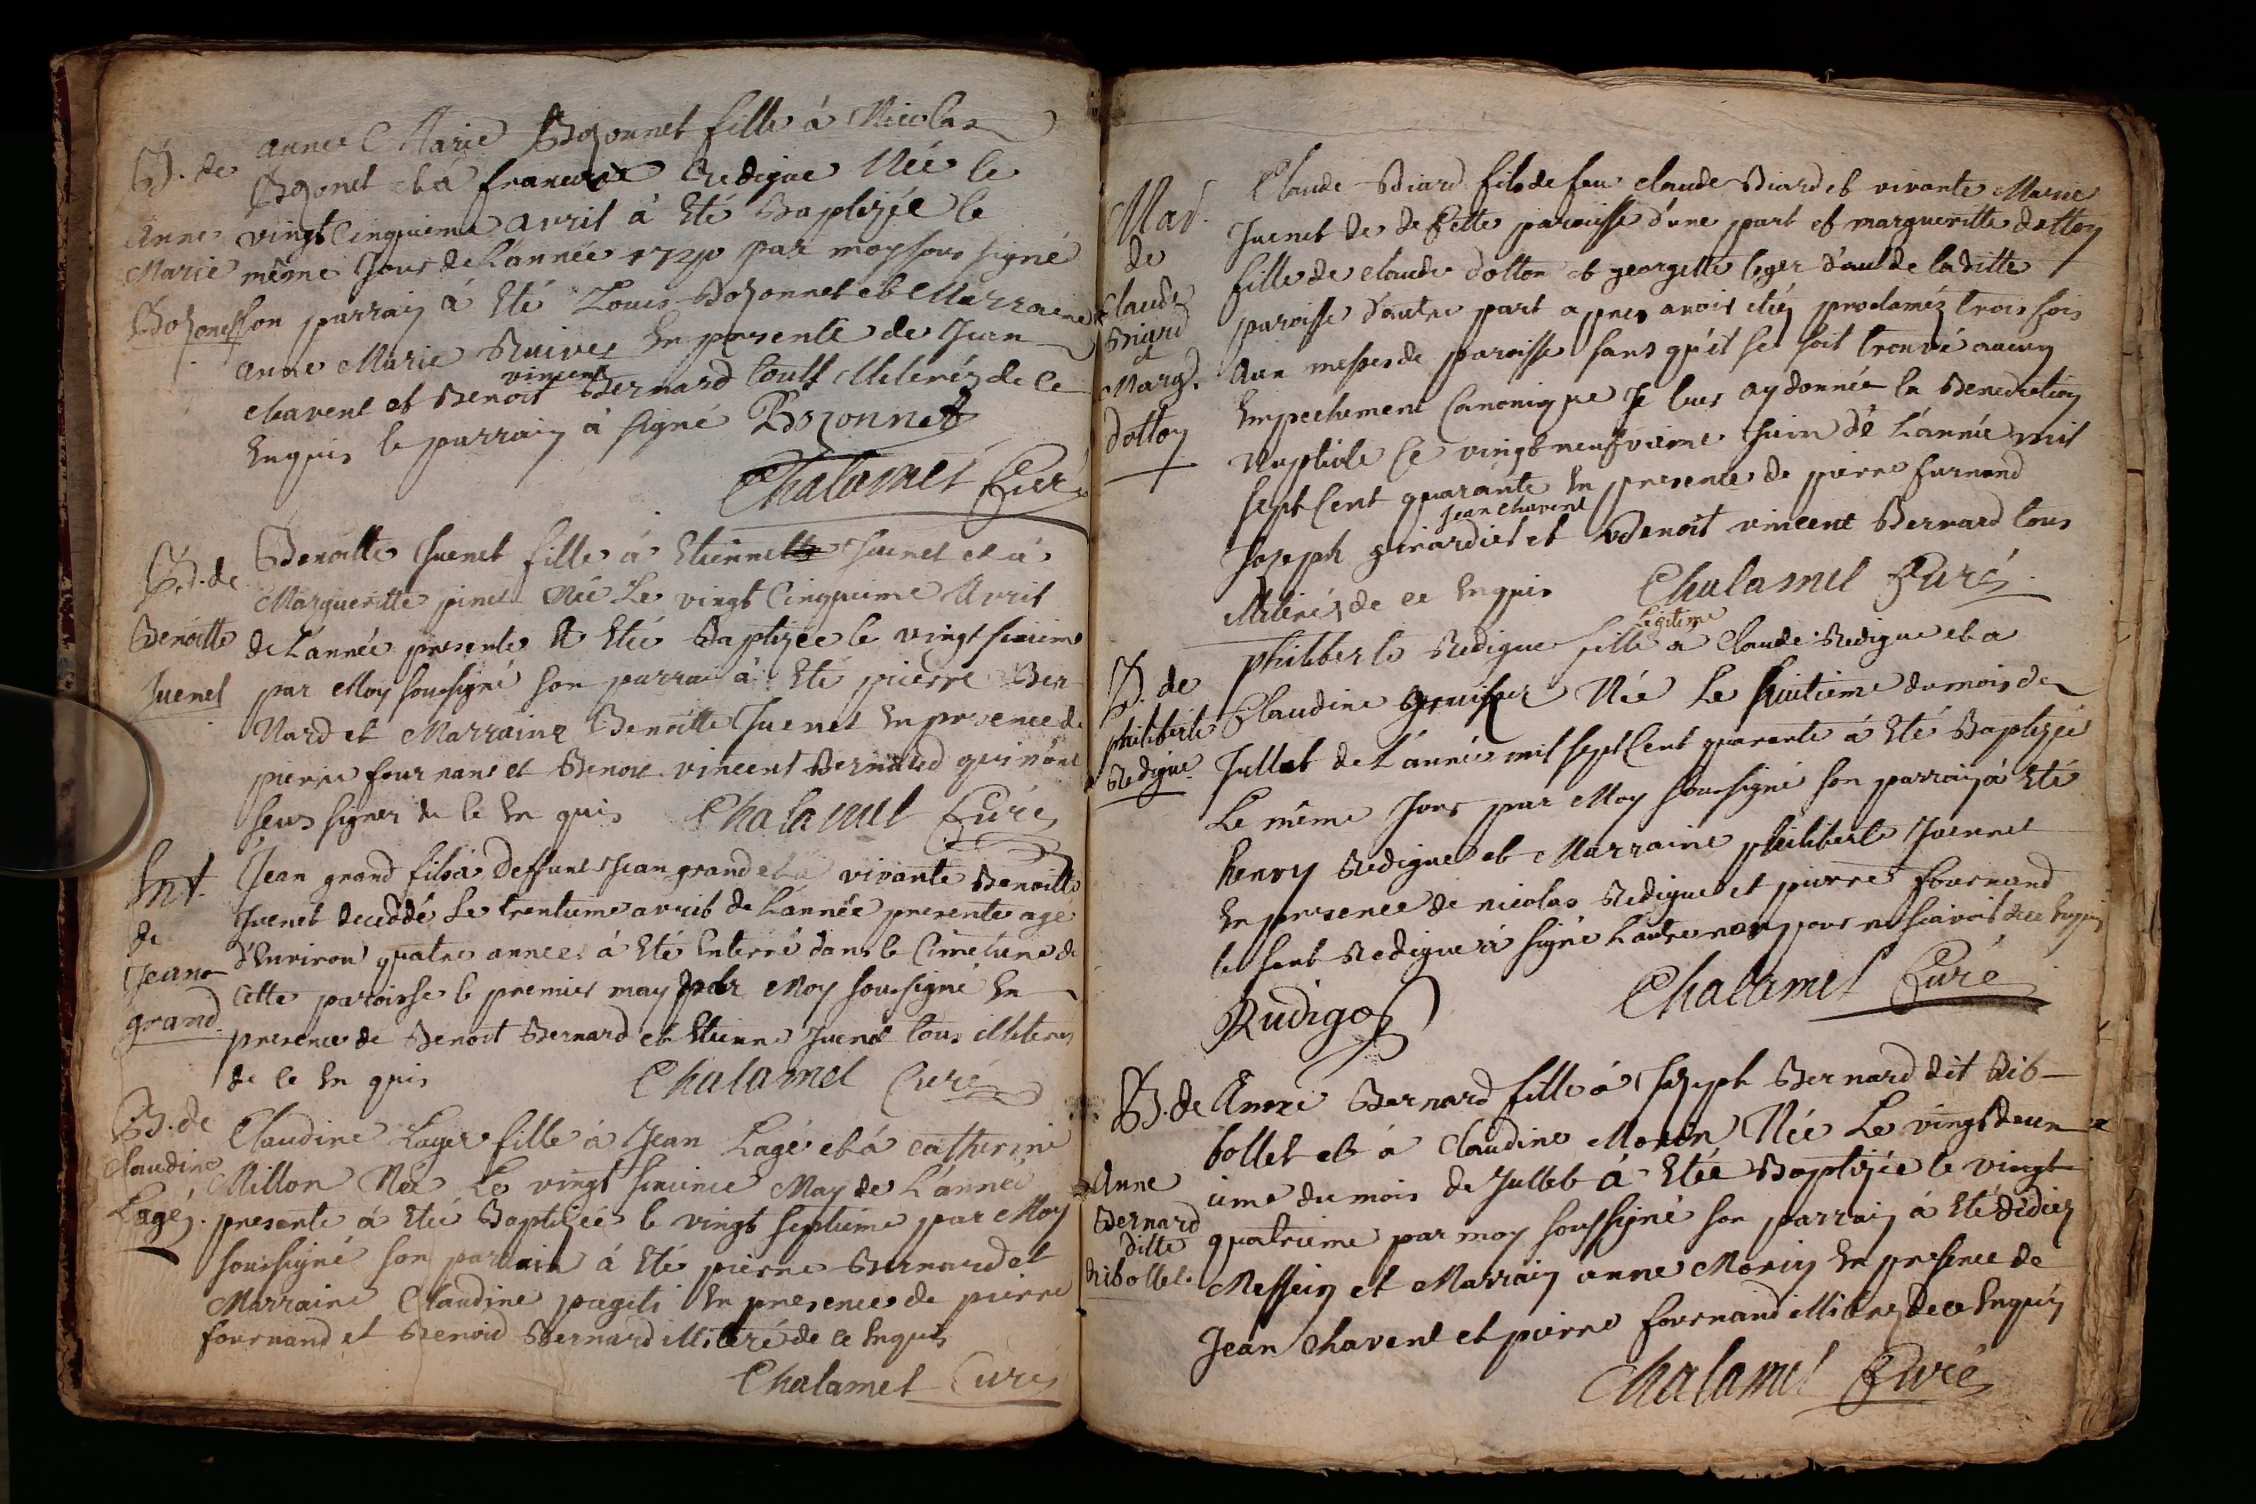 B. de
Anne
Marie
Bozonet
anne Marie Bozonnet fille à Nicolas
Bozonet et à francoise Redigue Née le
vingt Cinquieme avril à Eté Baptizée le
même Jour de L'année 1740 par moy sous signé
son parrain à Eté Louis Bozonnet et Marraine
anne Marie Ruivet En presente de Jean
chavent et Benoit vincent Bernard touts illiterés de ce
Enquis le parrain à signé Bozonnet
Chalamet Curé
B. de
Benoitte
Juenet
Benoitte Juenet fille à Etienne Juenet et à
Margueritte pinet Née Le vingt Cinquieme Avril
de L'année presente A Eté Baptizée le vingt sixieme
par Moy soussigné son parrain à Eté pierre Ber
Nard et Marraine Benoitte Juenet En presence de
pierre fournant et Benoit vincent Bernard qui n'ont
sçus signer de ce En quis Chalamet Curé
Ent.
de
Jean
grand
Jean grand fils à deffunt Jean grand et à vivante Benoitte
Juenet deceddé Le trentieme avril de L'année presente agé
d'Environ quatre années à Eté Enterré dans le Cimetiere de
cette paroisse le premier may par Moy soussigné En
presence de Benoit Bernard et Etienne Juenet tous illiterés
de ce En quis Chalamet Curé
B. de
Claudine
Lagé
Claudine Lager fille à Jean Lagé et à catherine
Millon Née Le vingt sixieme May de L'année
presente à Eté Baptizée le vingt septieme par Moy
soussigné son parrain à Eté pierre Bernard et
Marraine Claudine pageti En presence de pierre
fournand et Benoid Bernard illiteré de ce Enquis
Chalamet Curé
Mar.
de
Claude
Briard
et
Marg.
dotton
Claude Biard fils de feu claude Biard et vivante Marie
Juenet de de Cette paroisse d'une part et margueritte dotton
fille de claude dotton et georgette leger d'au de laditte
paroisse d'autre part apres avoir etés proclaméz trois fois
Aux messes de paroisse sans qu'il se soit trouvé aucun
Empechement Canonique Je leurs ay donnée la Benediction
Nuptiale Ce vingt neufvieme Juin de L'année mil
sept Cent quarante En presente de pierre furnand
Jean Chavent
Joseph girardiet et Benoit vincent Bernard tous
illiteréz de ce Enquis Chalamet Curé
B. de
philiberte
Redigue
philiberte Redigue fille Legitime à Claude Redigue et a
Claudine Née Le huitieme du mois de
Jullet de L'année mil sept Cent quarente à Eté Baptizée
Le même Jour par Moy soussigné son parrain à Eté
henry Redigue et Marraine philiberte Juennet
En presence de nicolas Redigue et pierre fournand
le sent Redigue à signé L'autre non pour ne sçavoir de ce Enquis
Rudigoz Chalamet Curé
B. de
Anne
Bernard
ditte
Ribollet
Anne Bernard fille à Joseph Bernard dit Rib-
bollet et à Claudine Morin Née Le vingt deux
ieme du mois de Jullet à Etée Baptizée le vingt
quatrieme par moy soussigné son parrain à Eté didier
Messein et Marrain anne Morin En presence de
Jean Chavent et pierre fournand illiteréz de ce Enquis
Chalamet Curé